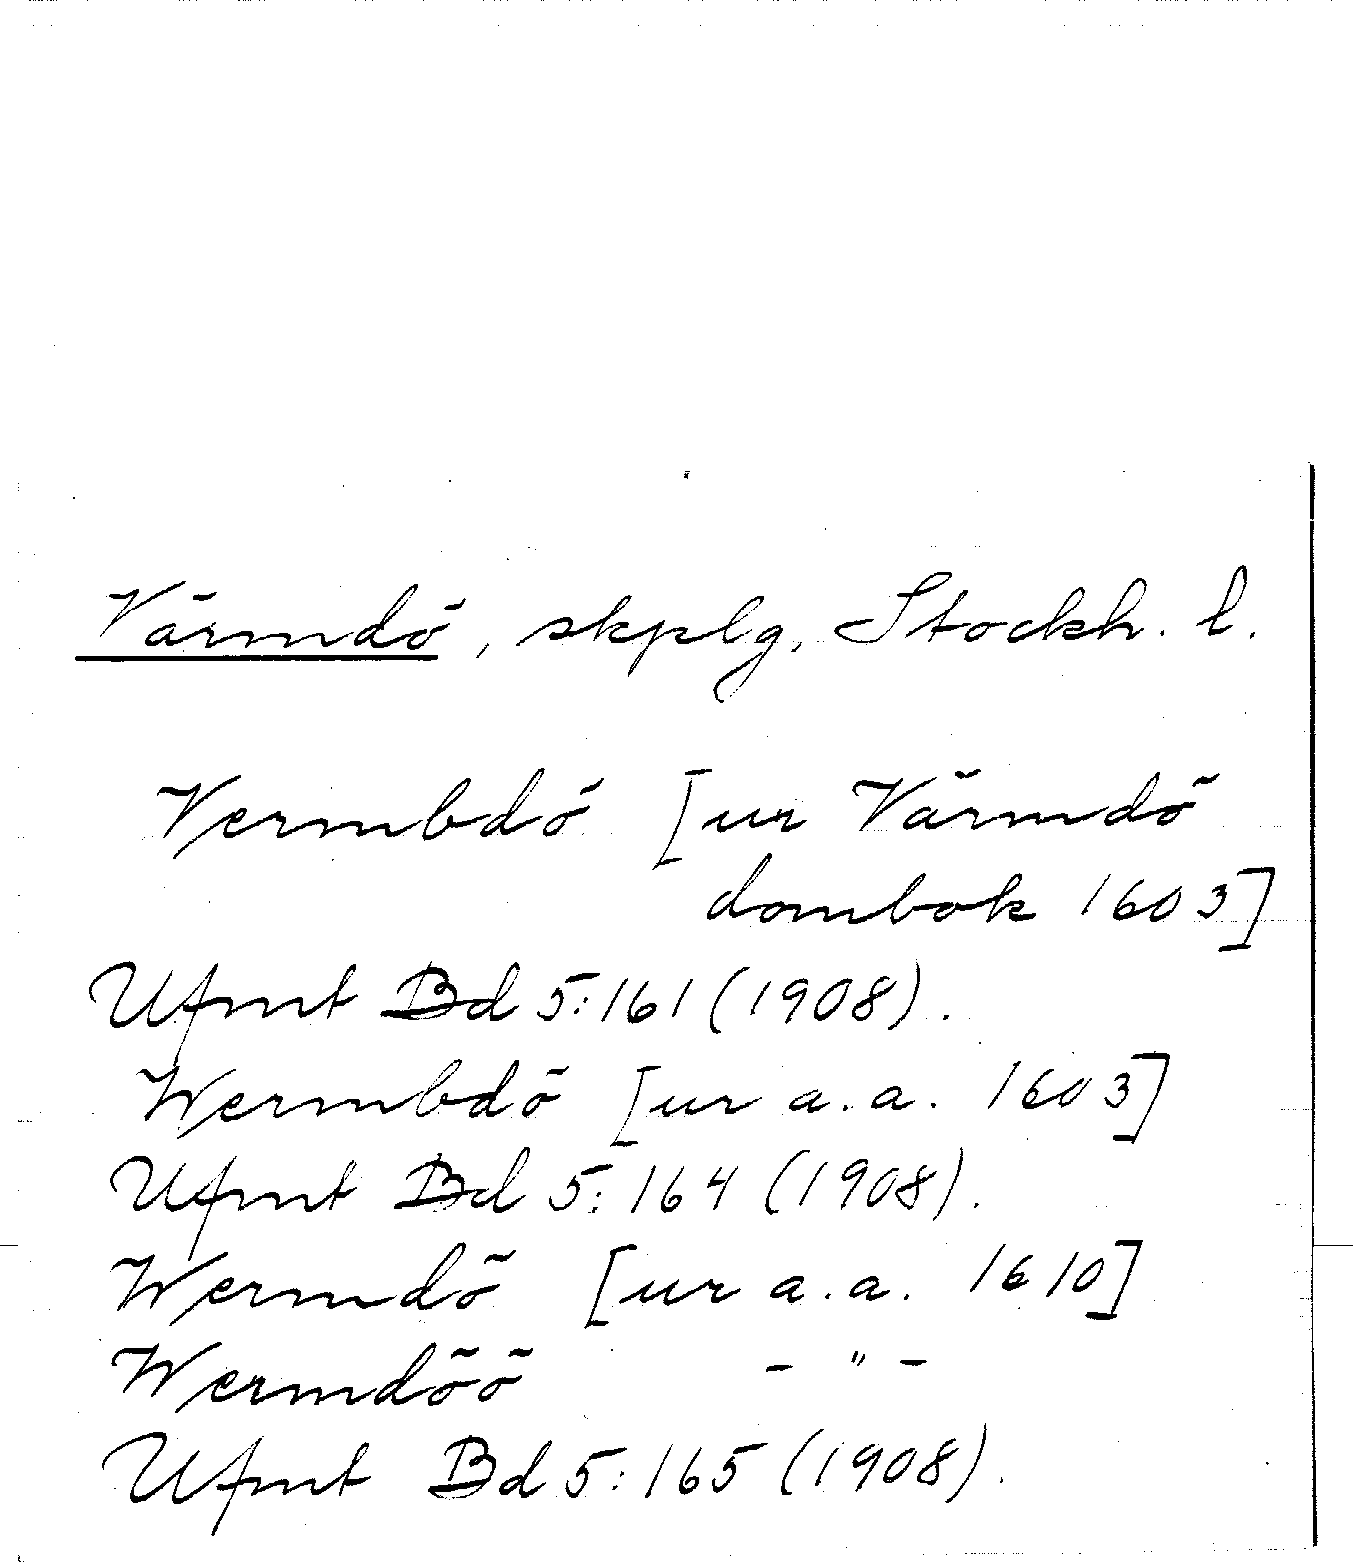 Värmdö, skplg, Stockh. l.
Vermbdö [ur Värmdö
dombok 1603]
Ufmt Bd 5:161 (1908).
Wermbdö [ur a.a. 1603]
Ufmt Bd 5:164 (1908).
Wermdö [ur a.a. 1610]
Wermdöö - " -
Ufmt Bd 5:165 (1908).